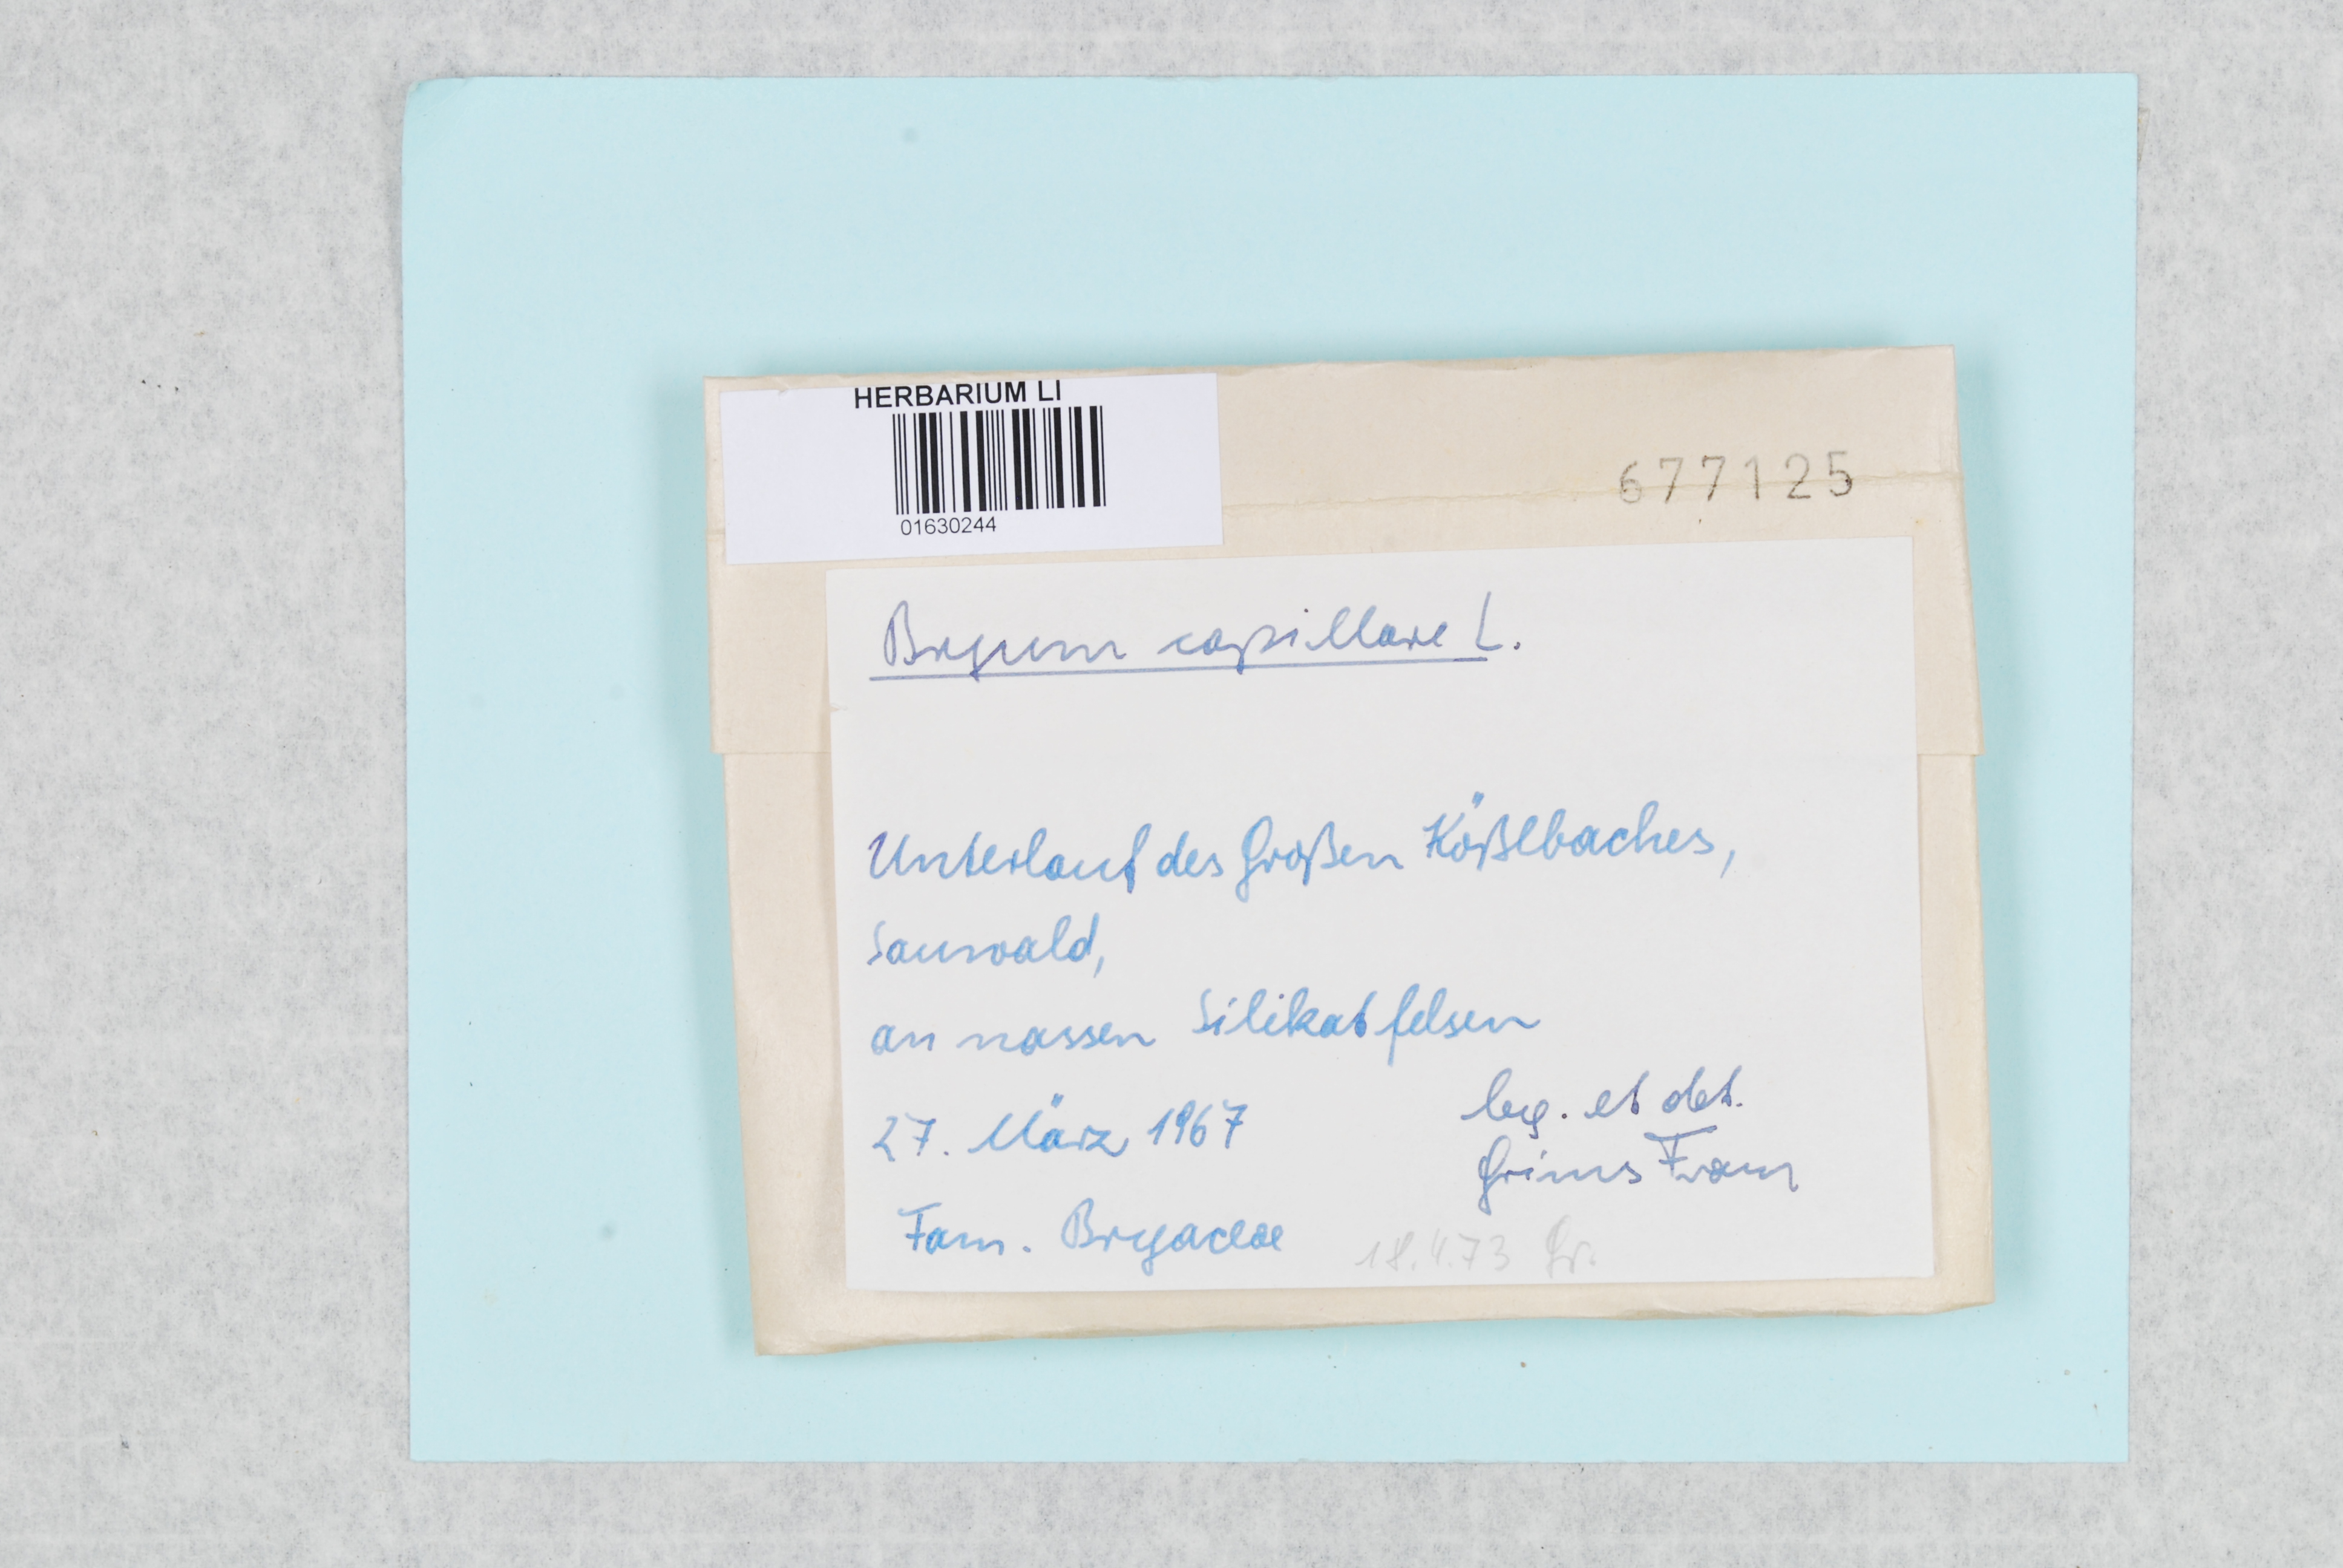 HERBARIUM LI
01630244
677125
Bryum capillare L.
Unterlauf des Großen Kößlbaches,
Sauwald,
an nassen Silikatfelsen
27. März 1967
leg. et det.
Grims Franz
Fam. Bryaceae
18.4.73 Gr.